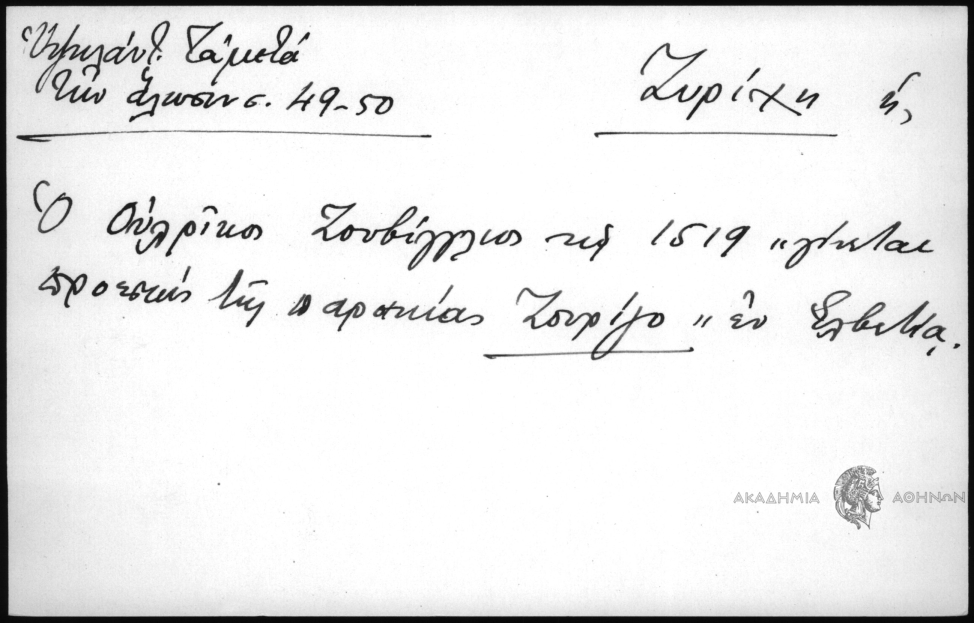 Ὑψηλάντ. Τὰ μετὰ
τὴν ἅλωσιν σ. 49-50
Ζυρίχη ἡ,
Ὁ Οὐλρῖκος Ζουβίγγλιος τῷ 1519 „γίνεται
προεστὼς τῆς παροικίας Ζουρίγο „ ἐν Ἑλβετίᾳ.
ΑΚΑΔΗΜΙΑ ΑΘΗΝΩΝ